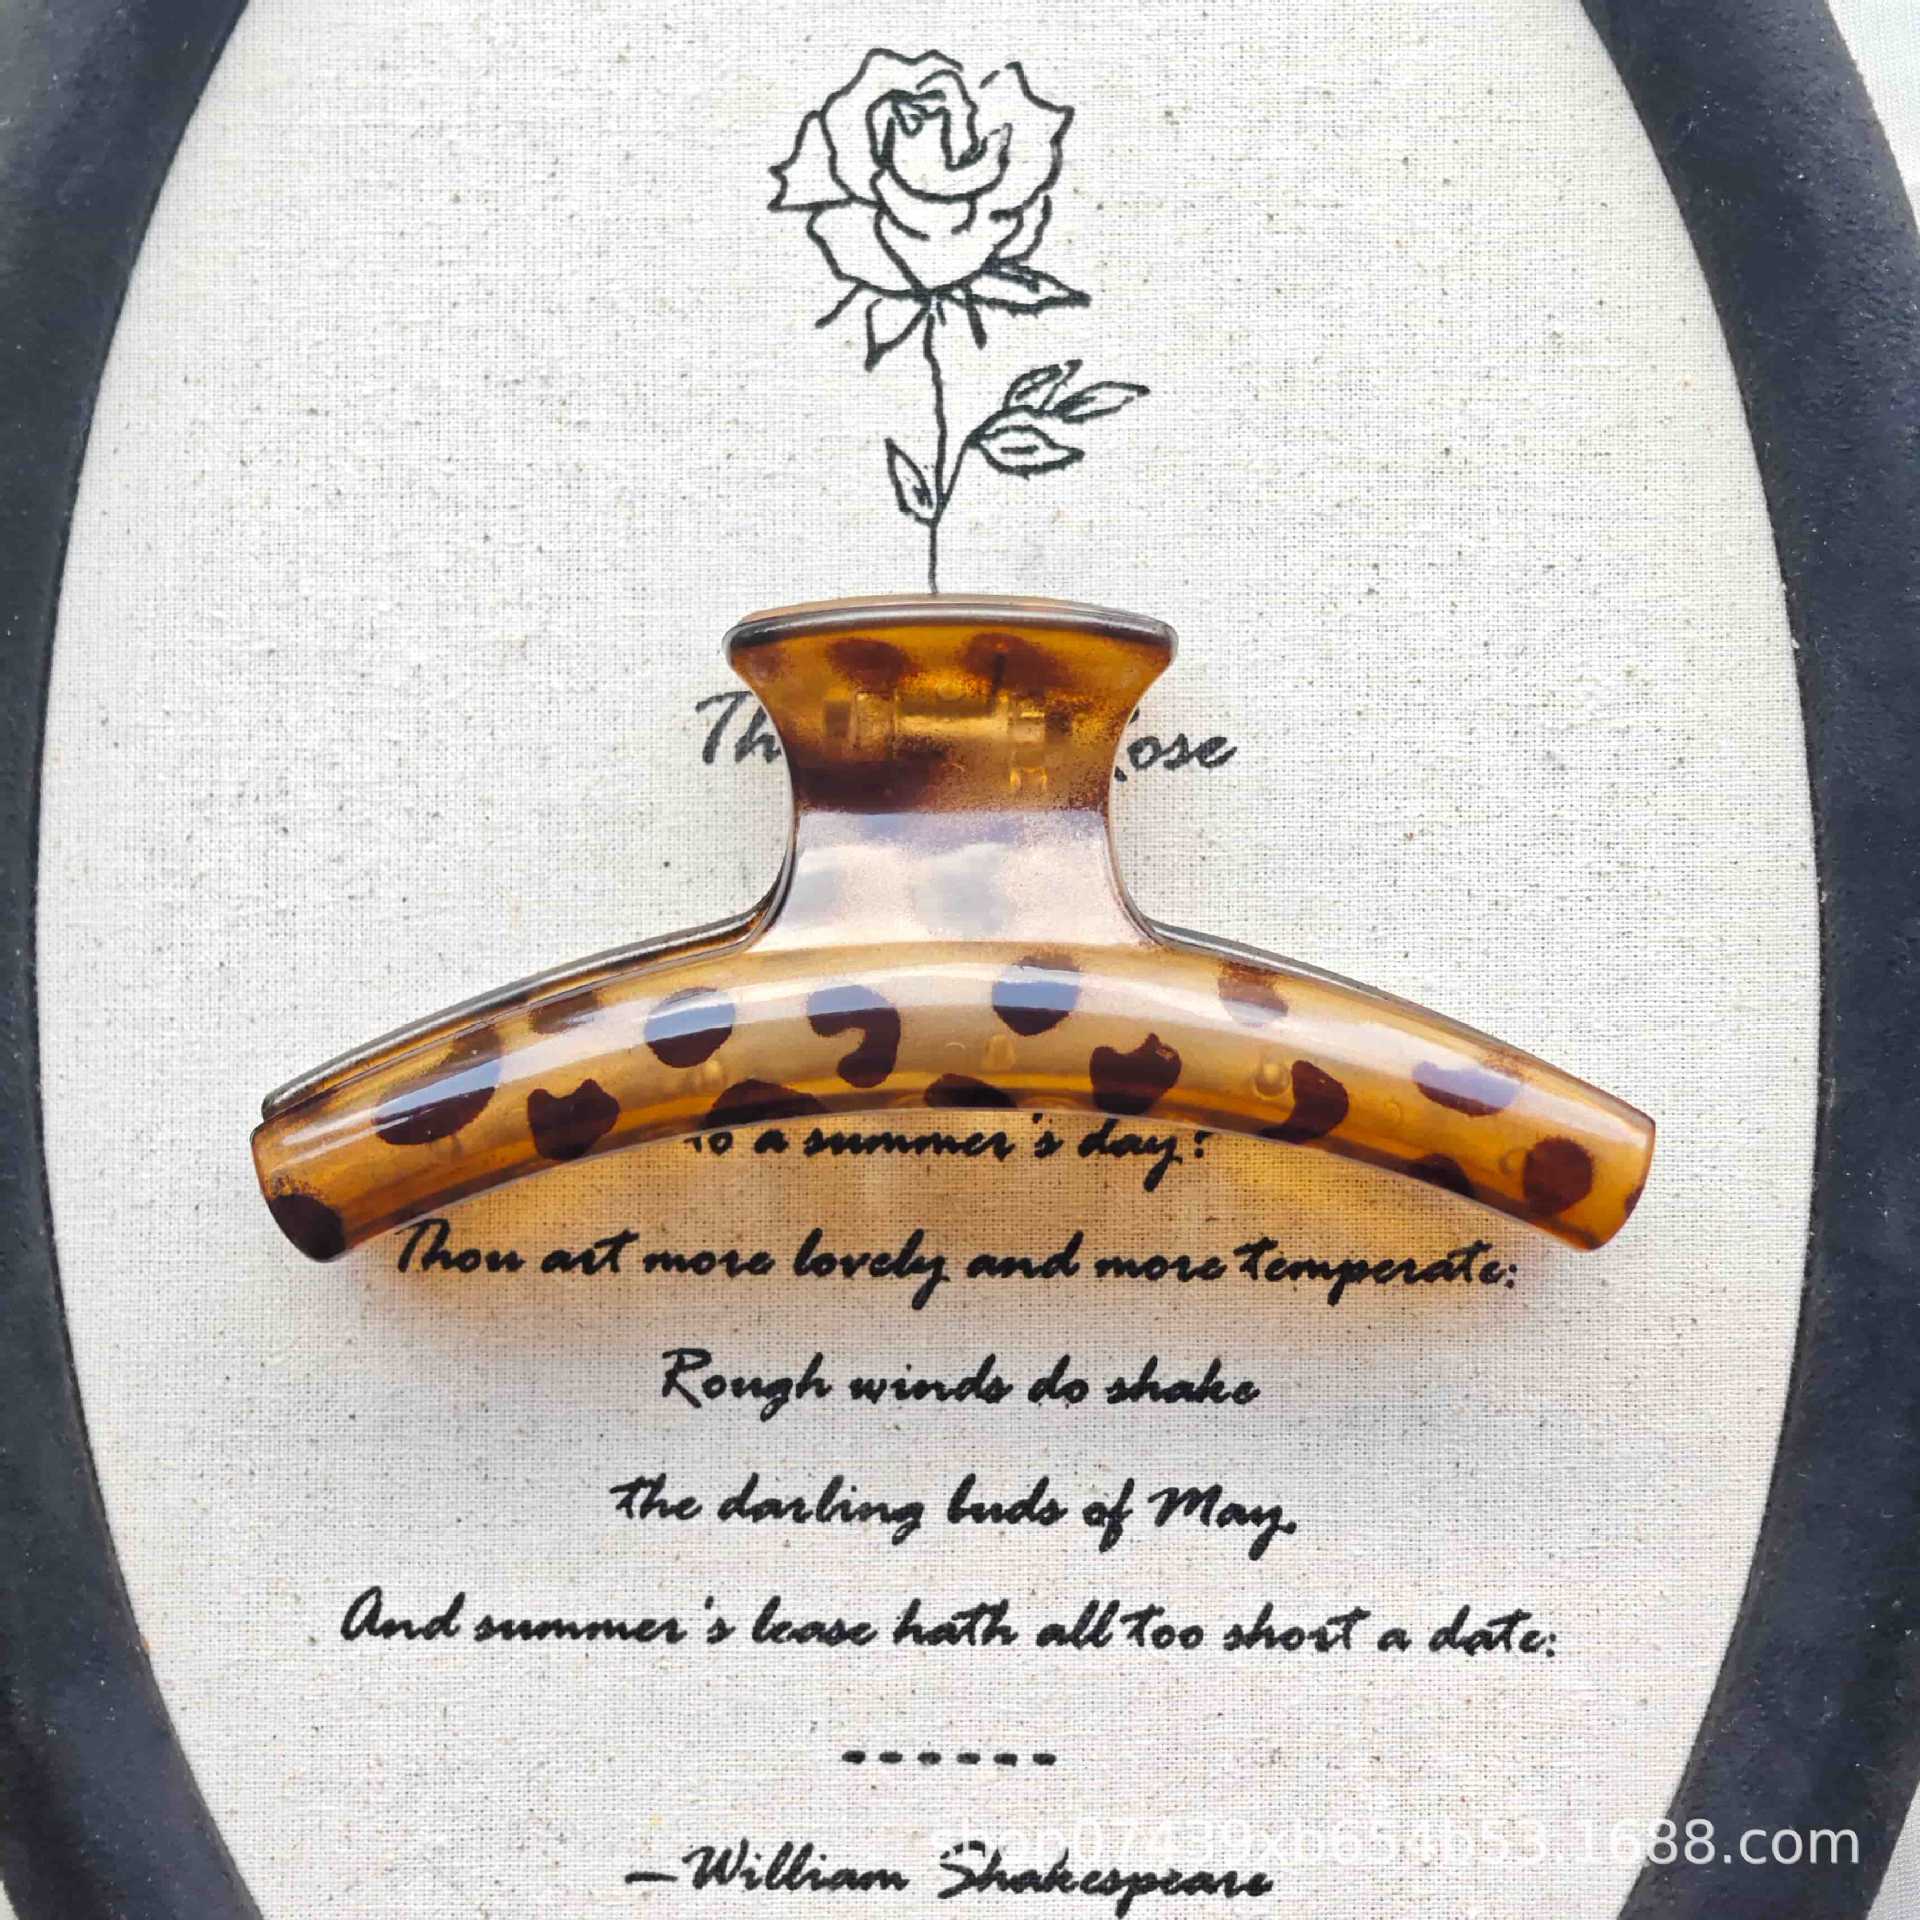 to a summer's day?
Thou art more lovely and more temperate:
Rough winds do shake
the darling buds of May,
And summer's lease hath all too short a date:
------
—William Shakespeare